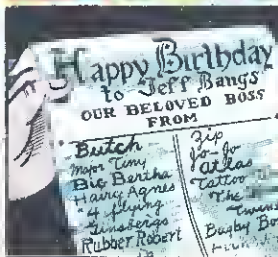 Happy Birthday
to Jeff Bangs
OUR BELOVED BOSS
FROM
Butch
Major Tiny
Big Bertha
Hairy Agnes
"4 flying
Ginsbergs
Rubber Robert
Zip
Jo-Jo
Atlas
Tattoo
The
Twins
Bugby